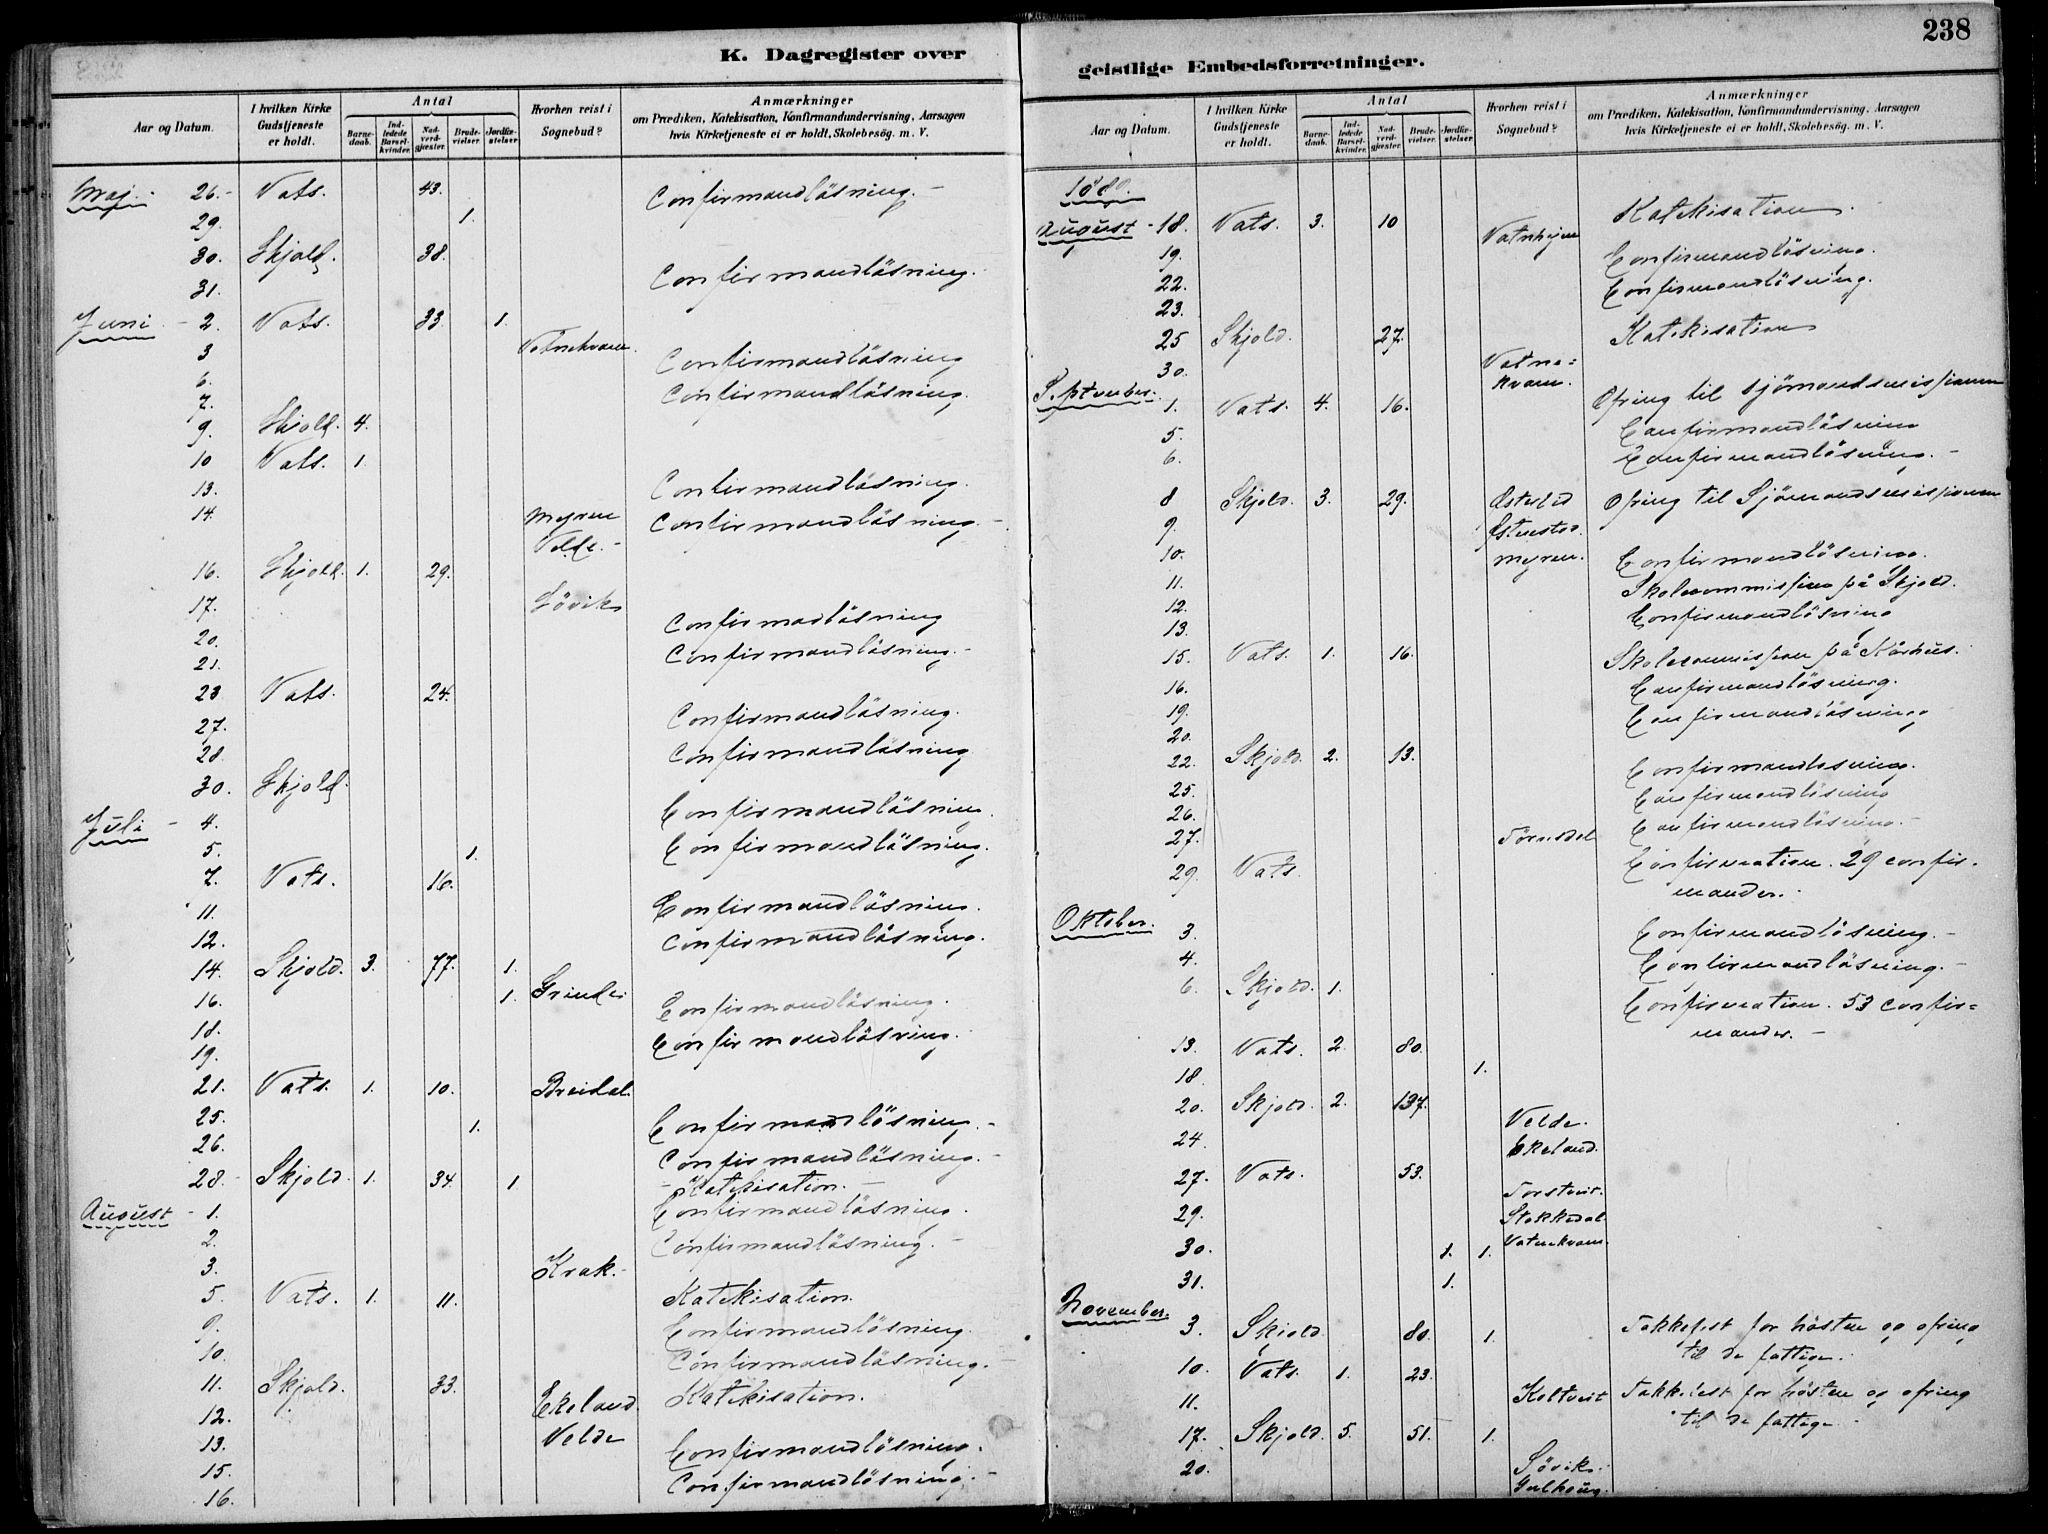 K. Dagregister over
Aar og Datum. | I hvilken Kirke Gudstjeneste er holdt. | Antal | Barnedaab. | Indledede Barselkvinder. | Nadverdgjæster. | Brudevielser. | Jordfæstelser. | Hvorhen reist i Sognebud? | Anmærkninger om Prædiken, Katekisation, Konfirmandundervisning, Aarsagen hvis Kirketjeneste ei er holdt, Skolebesøg. m. V.
Maj. 26. Vats. 43. Confirmandläsning.
29. 1.
30. Skjold. 38.
31. Confirmandläsning.
Juni 2. Vats. 33. 1.
3 Vatnekvam.
6. Confirmandläsning
7. Confirmandläsning.
9. Skjold. 4.
10 Vats. 1.
13. Confirmandläsning.
14. Myren Confirmandläsning.
Velde.
16. Skjold. 1. 29.
17. Lövik
20. Confirmadläsning
21. Confirmandläsning.
23 Vats. 24.
27. Confirmandläsning.
28 Confirmandläsning
30. Skjold.
Juli 4. Confirmandläsning.
5. 1. Confirmandläsning.
7. Vats. 16.
11. Confirmandläsning.
12. Confirmandläsning.
14. Skjold. 3. 77. 1.
16. 1. Grinde.
18. Confirmandläsning.
19. Confirmandläsning.
21. Vats. 1. 10. Breidal.
25. 1. Confirmandläsning.
26. Confirmandläsning.
28. Skjold. 1. 34. 1. Katekisation.
August 1. Confirmandläsning.
2. Confirmandläsning.
3. Krak.
5. Vats. 1. 11. Katekisation.
9. Confirmandläsning.
10. Confirmandläsning.
11. Skjold. 33. Katekisation.
12. Ekeland.
13. Velde
15. Confirmandläsning.
16. Confirmandläsning.
238
geistlige Embedsforretninger.
Aar og Datum. | I hvilken Kirke Gudstjeneste er holdt. | Antal | Barnedaab. | Indledede Barselkvinder. | Nadverdgjæster. | Brudevielser. | Jordfæstelser. | Hvorhen reist i Sognebud? | Anmærkninger om Prædiken, Katekisation, Konfirmandundervisning, Aarsagen hvis Kirketjeneste ei er holdt, Skolebesög. m. V.
August 18. Vats. 3. 10 Katekisation.
19.
22. Confirmandläsning.
23. Confirmandläsning.
25 Skjold. 27. Katekisation
30. Vatnekvam.
September. 1. Vats. 4. 16. Ofring til sjömandsmissionen
5. Confirmandläsning
6. Confirmandläsning.
8 Skjold. 3. 29. Ofring til Sjömandsmissionen
9.
10. Myren.
11. Confirmandläsning.
12. Skolecommission på Skjold.
13. Confirmandläsning
15. Vats. 1. 16.
16. Skolecommission på Kårhus.
19. Confirmandläsning.
20. Confirmandläsning
22. Skjold. 2. 13.
25. Confirmandläsning.
26. Confirmandläsning
27. Confirmandläsning.
29. Vats. Confirmation. 29 confirmander.
Oktober. 3. Confirmandläsning.
4. Confirmandläsning.
6. Skjold. 1. Confirmation. 53 confirmander.
13. Vats. 2. 80.
18. 1.
20. Skjold. 2. 137.
24. Velde.
Ekeland.
27. Vats. 53.
29. Stokkedal
30. 1. 1. Vatnekvam.
31. 1.
November. 3. Skjold. 80. 1. Takkefest for hösten og ofring til de fattige.
10. Vats. 1. 23.
11. Koltveit Takkefest for hösten og ofring til de fattige.
17. Skjold. 5. 51. 1.
20.